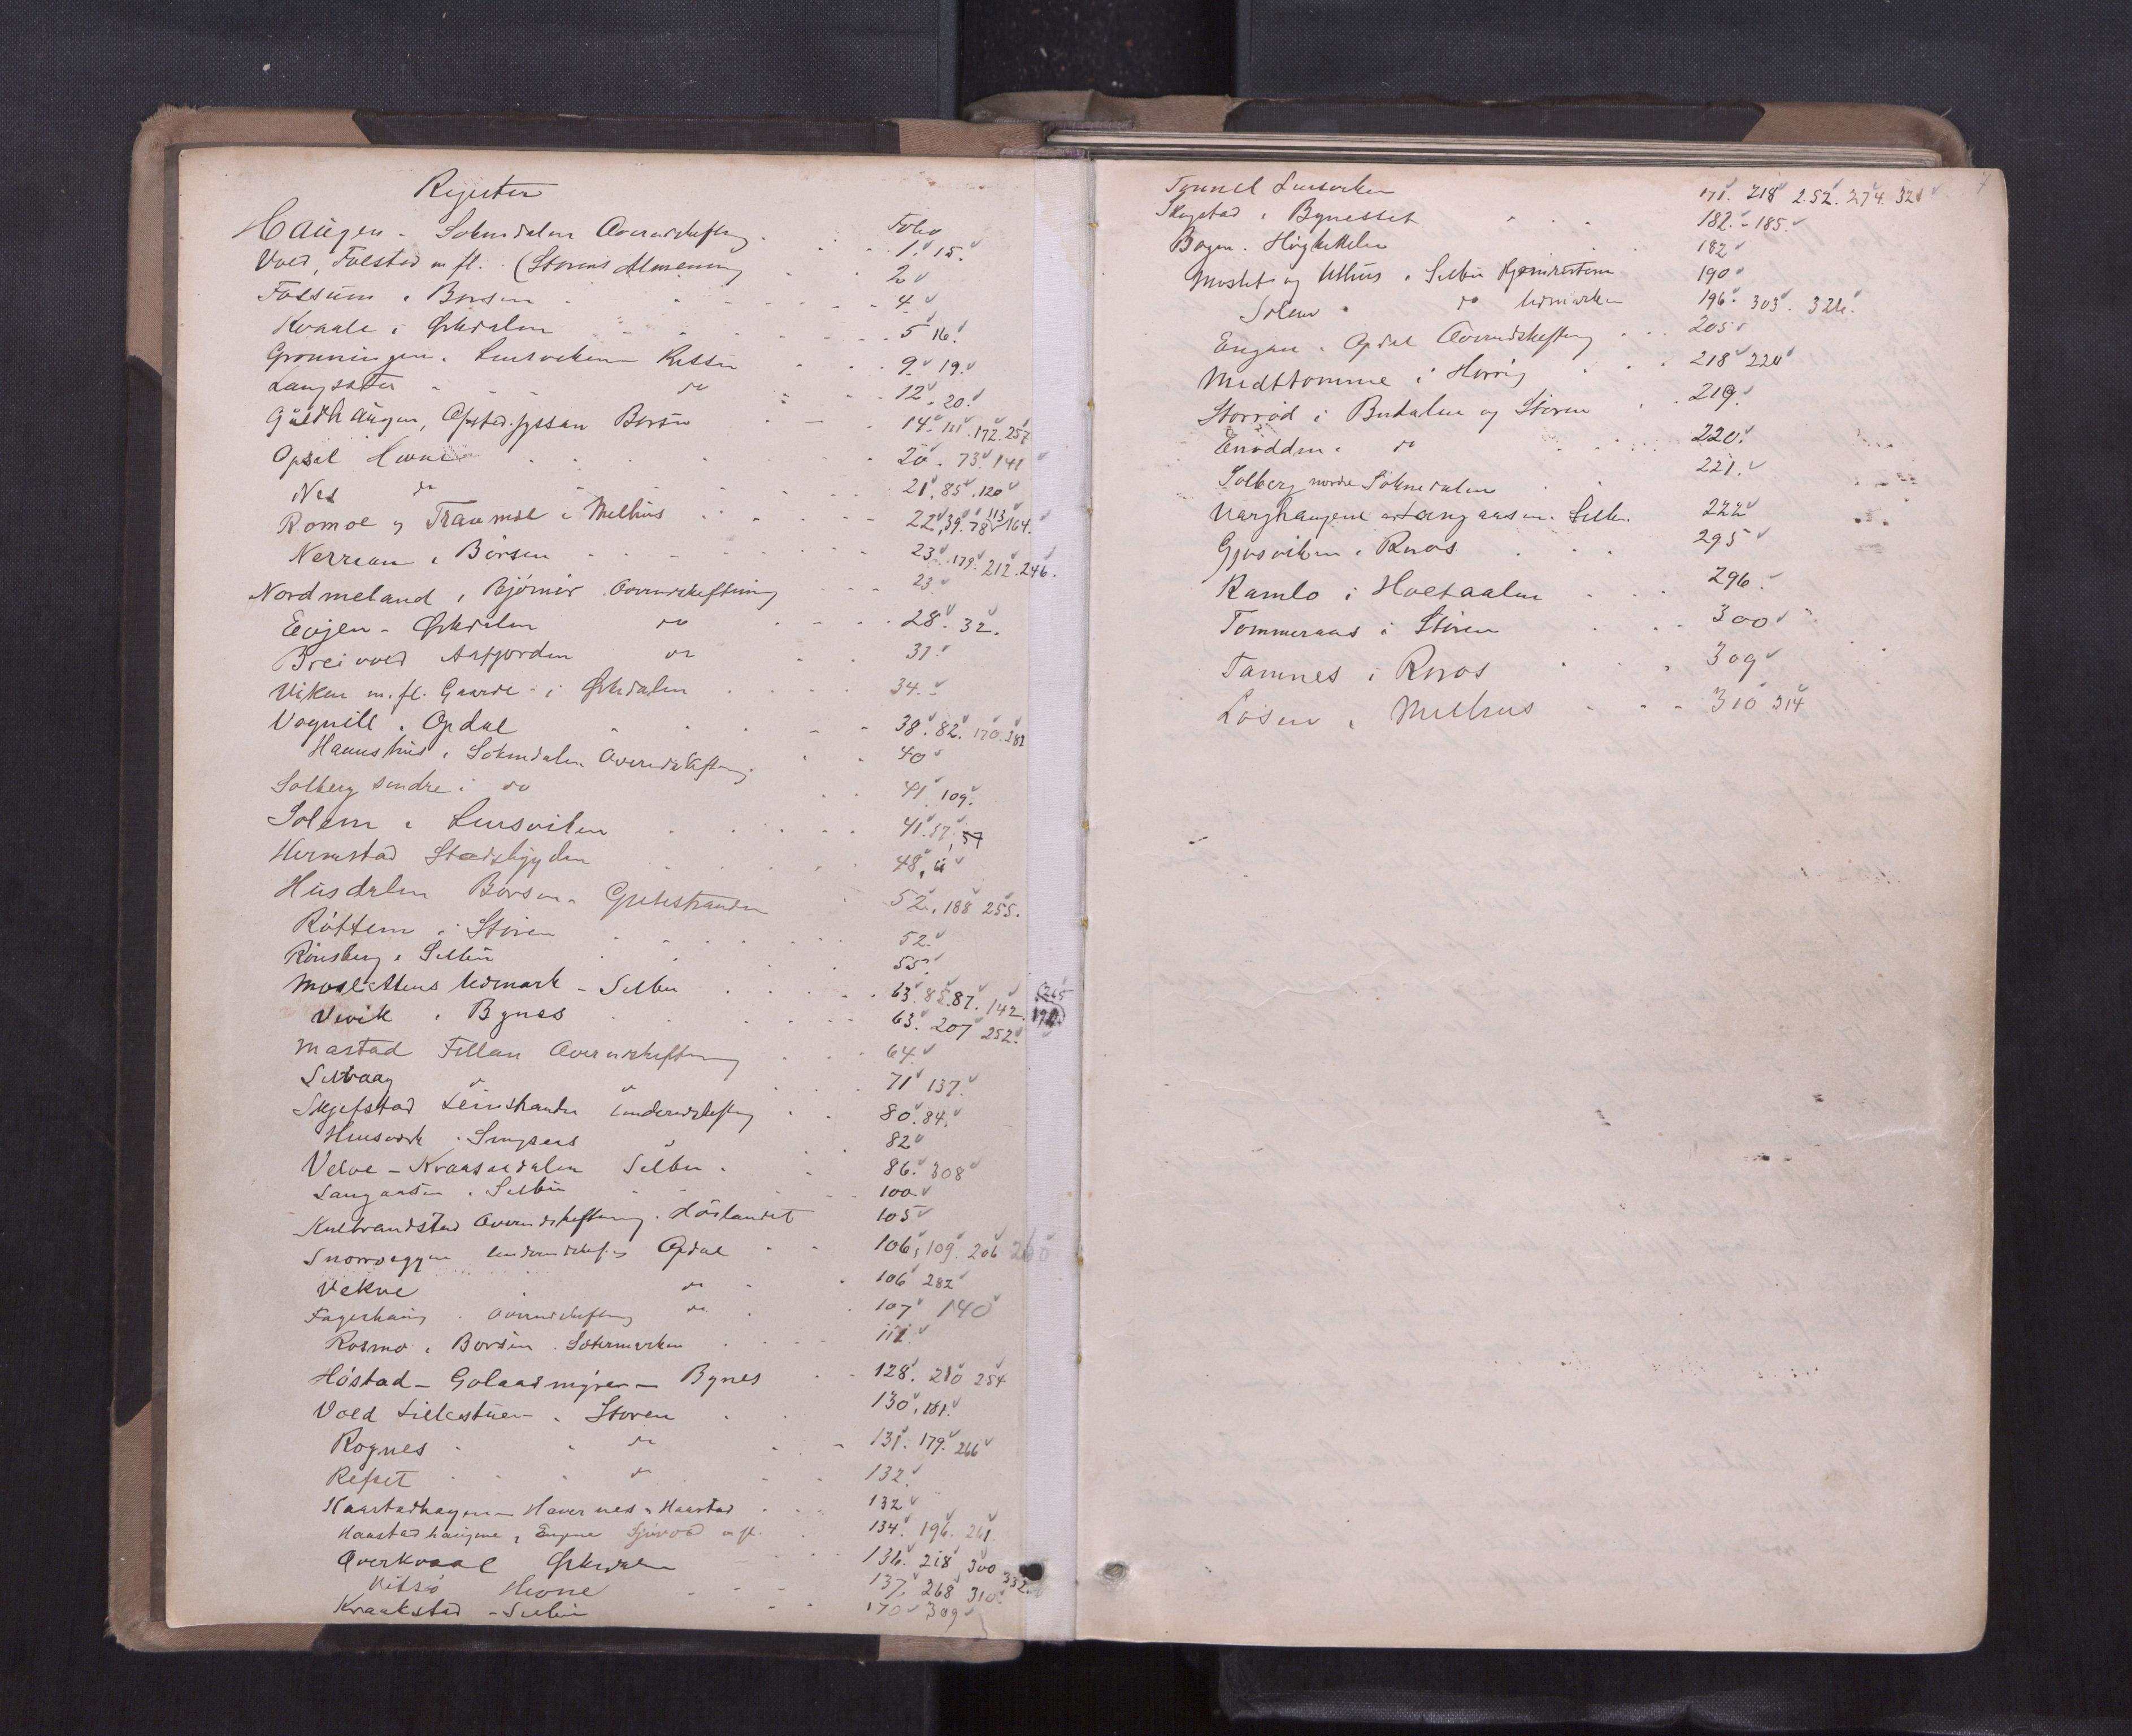 Register
Folio
Haugen - Soknedalen Overudskiftning 1. 15.
Vold, Folstad m fl. (Størens Almenning 2
Folsum i Børsen 4
Kvaale i Orkdalen 5 16.
Grønningen i Lensviken Rissen 9 19.
Langsæter do 12. 20.
Guldhaugen, Opstad Børsen 14. 111. 172. 257
Opsal Hevne 20. 73. 141
Nes do 21. 85. 120
Romoe og Traumoe i Melhus 22. 39. 78 113 164.
Nerrean i Børsen 23. 179. 212. 246.
Nordmeland i Bjørnør Overudskiftning 23
Evjen - Orkdalen do 28. 32.
Breivold Aafjorden do 31
Viken m. fl. Gaarde i Orkdalen 34.
Vognill i Opdal 38. 82. 170. 282
Haanshus i Soknedalen Overudskiftning 40
Solberg søndre i do 41 109.
Solem i Lensviken 41. 57
Hermstad Stadsbygden 48,
Husdalen Børsen Gjetestranden 52. 188 255.
Røttem i Støren 52.
Rønsberg i Selbu 55.
Moslettens Udmark - Selbu 63. 85. 87. 142.
Vevik i Bynes 63. 207 252.
Mastad Fillan Overudskiftning 64
Selvaag 71 137.
Skjefstad Leinstranden Underudskiftning 80. 84.
82
Velve - Kraasaadalen Selbu 86. 308
Langaasen i Selbu 100
Kulbrandstad Overudskiftning Hølandet 105
Snoroeggen Underudskiftning Opdal 106, 109. 206 260
Vekve do 106 282
Fagerhaug Overudskiftning do 107 140
Rosmo i Børsen Sætermarken 111.
Høstad - Golaasmyren - Bynes 128. 210 254
Vold Lillestuen i Støren 130. 181.
Rognes do 131. 179. 266
Refset do 132.
Kaastadhagen Havernes Haarstad 132
Haastadhaugene, Engene m fl. 134. 196. 261
Overkvaal Orkdalen 136. 218 300 332.
Vitsø Hevne 137. 268 310
Kraakstad - Selbu 170 309
Tønnel Lensviken 171. 218 252. 274. 321
Skogstad i Bynesset 182. - 185.
Bogen i 182
Moslet og Uthus i Selbu 190
Solem do Udmarken 196. 303. 324.
Engan i Opdal Overudskiftning 205
Midttømme i Horrig 218 220
Storrød i Budalen og Støren 219.
Enodden i do 220.
Solberg nordre Soknedalen 221.
Varghaugene Langaasen Selbu 222
Gjøsviken i Røros 295
Ramlo i Holtaalen 296
Tømmeraas i Støren 300
Tamnes i Røros 309
Løsen i Melhus 310 314